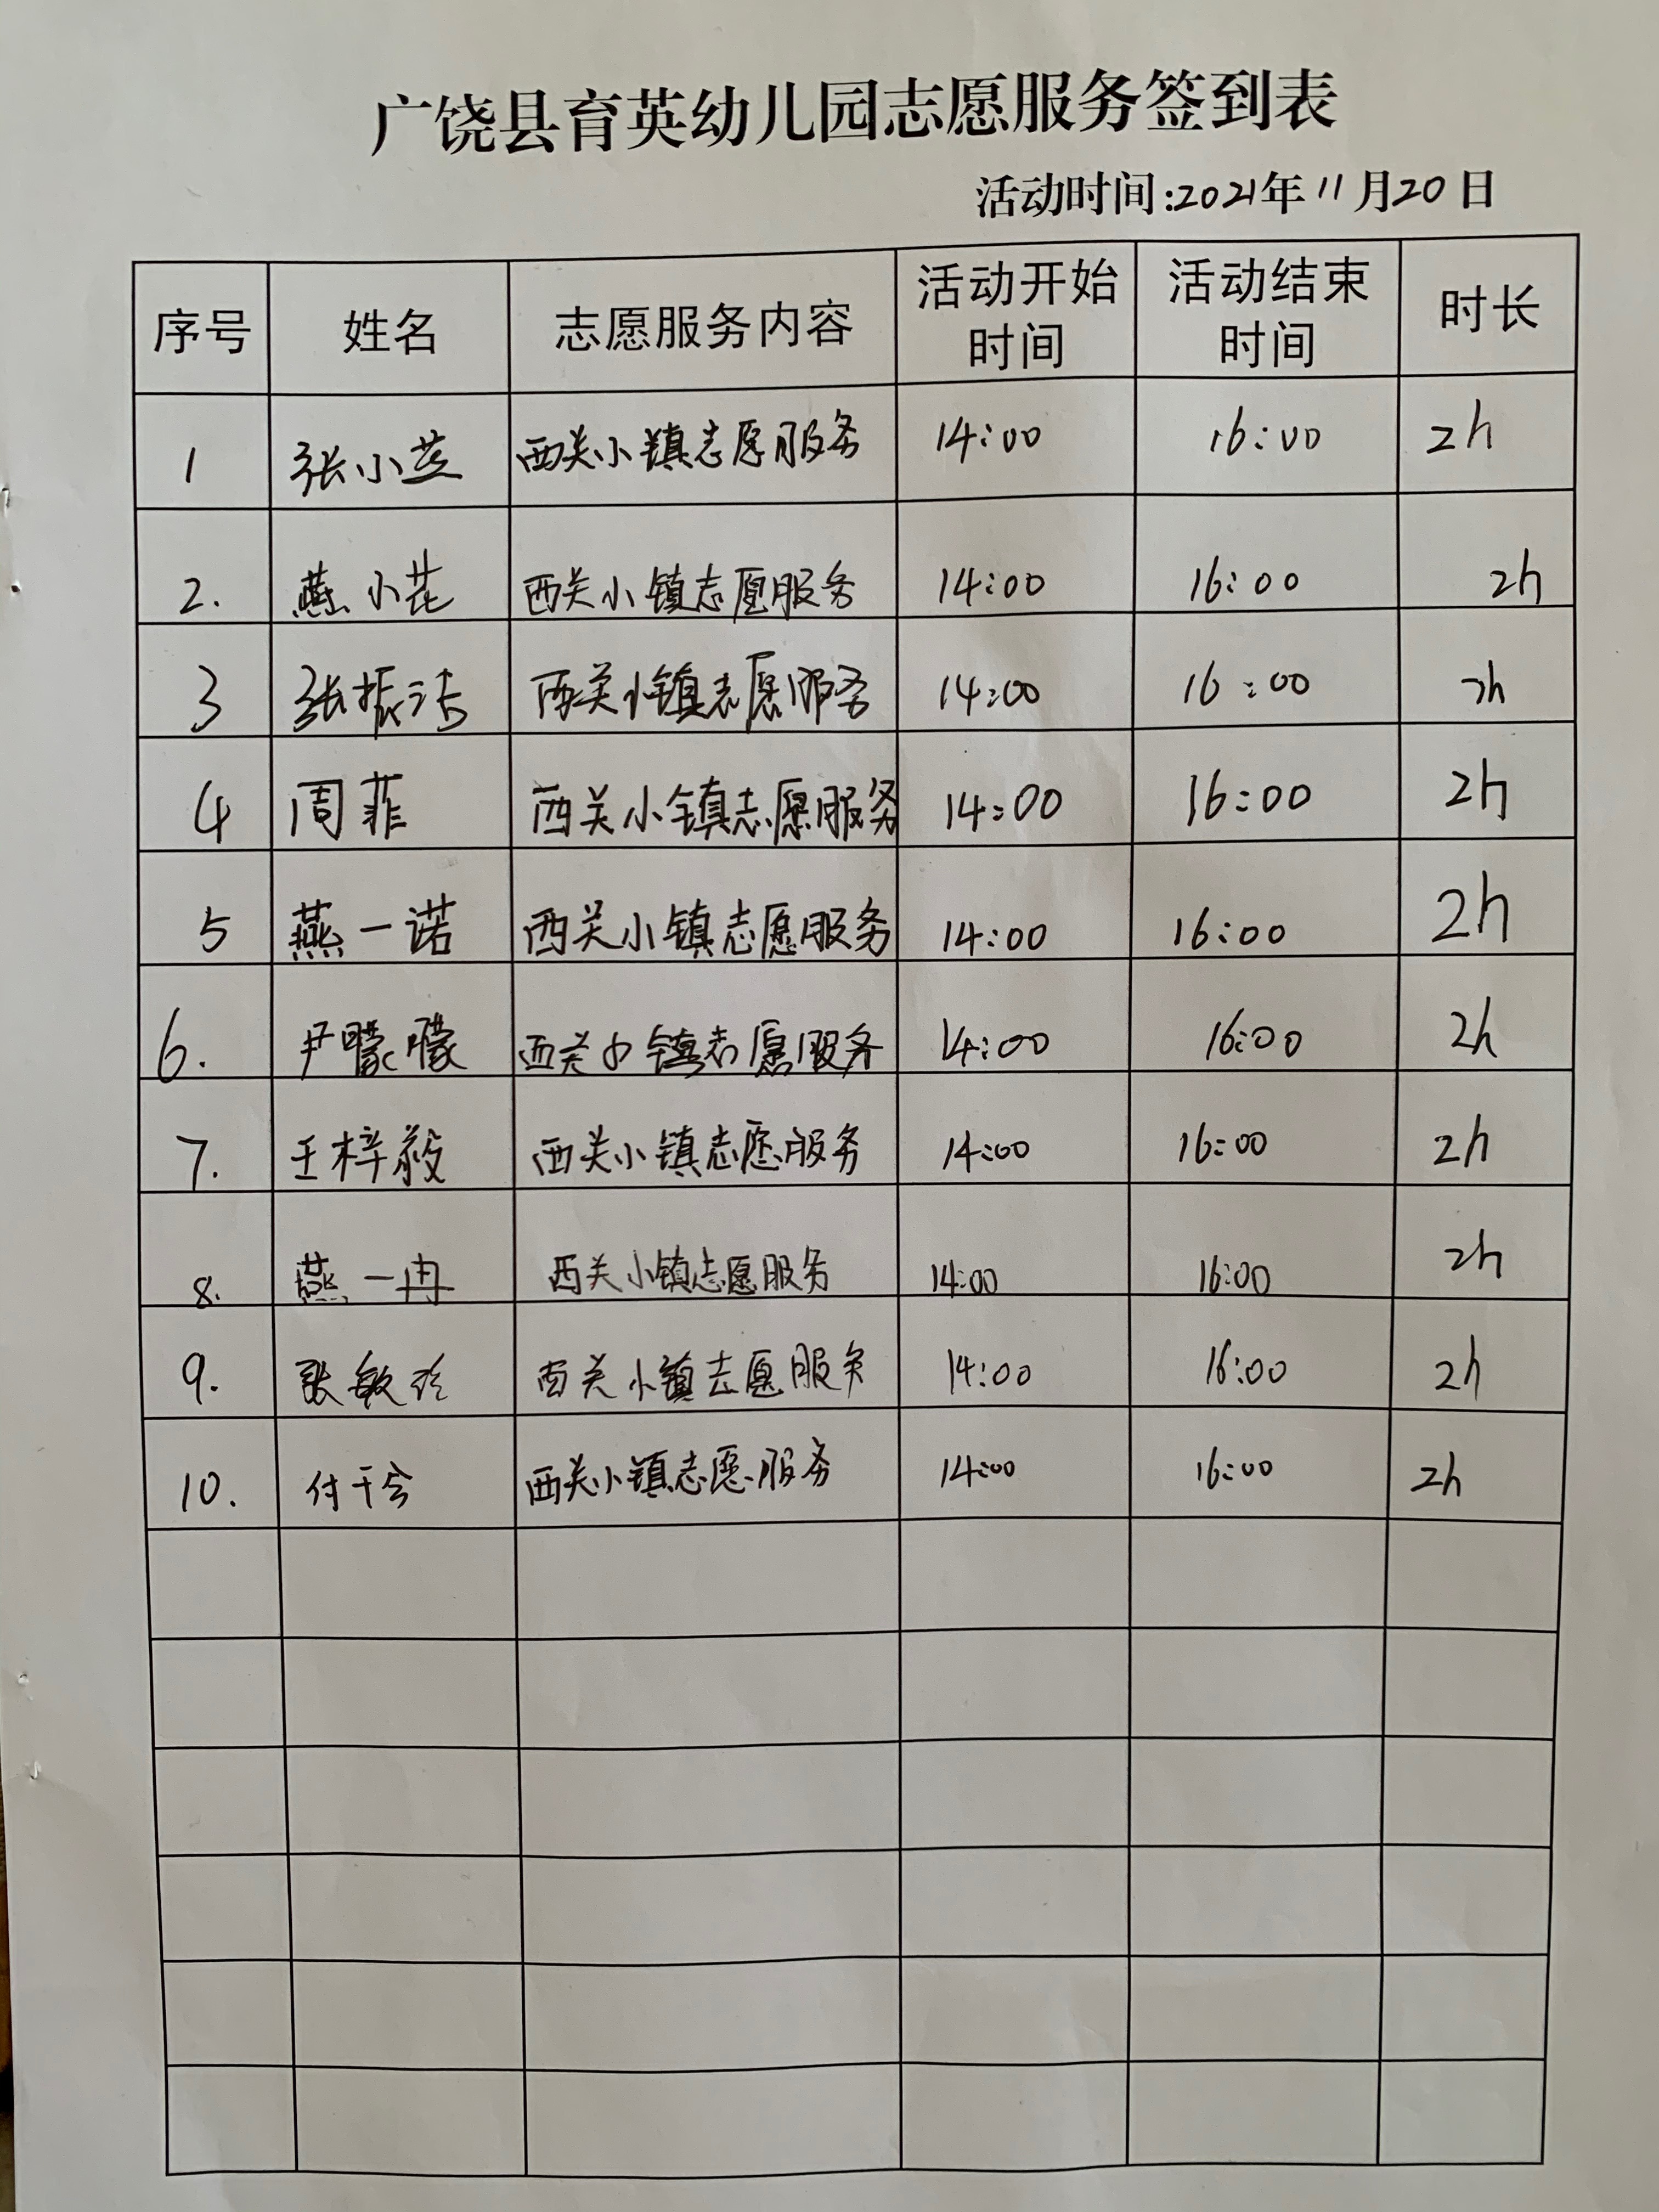 广饶县育英幼儿园志愿服务签到表
活动时间:2021年11月20日
序号 姓名 志愿服务内容 活动开始时间 活动结束时间 时长
1 张小燕 西关小镇志愿服务 14:00 16:00 2h
2. 燕小花 西关小镇志愿服务 14:00 16:00 2h
3 张振洁 西关小镇志愿服务 14:00 16:00 2h
4 周菲 西关小镇志愿服务 14:00 16:00 2h
5 燕一诺 西关小镇志愿服务 14:00 16:00 2h
6. 尹朦朦 西关小镇志愿服务 14:00 16:00 2h
7. 王梓毅 西关小镇志愿服务 14:00 16:00 2h
8. 燕一冉 西关小镇志愿服务 14:00 16:00 2h
9. 张敏 西关小镇志愿服务 14:00 16:00 2h
10. 付千 西关小镇志愿服务 14:00 16:00 2h